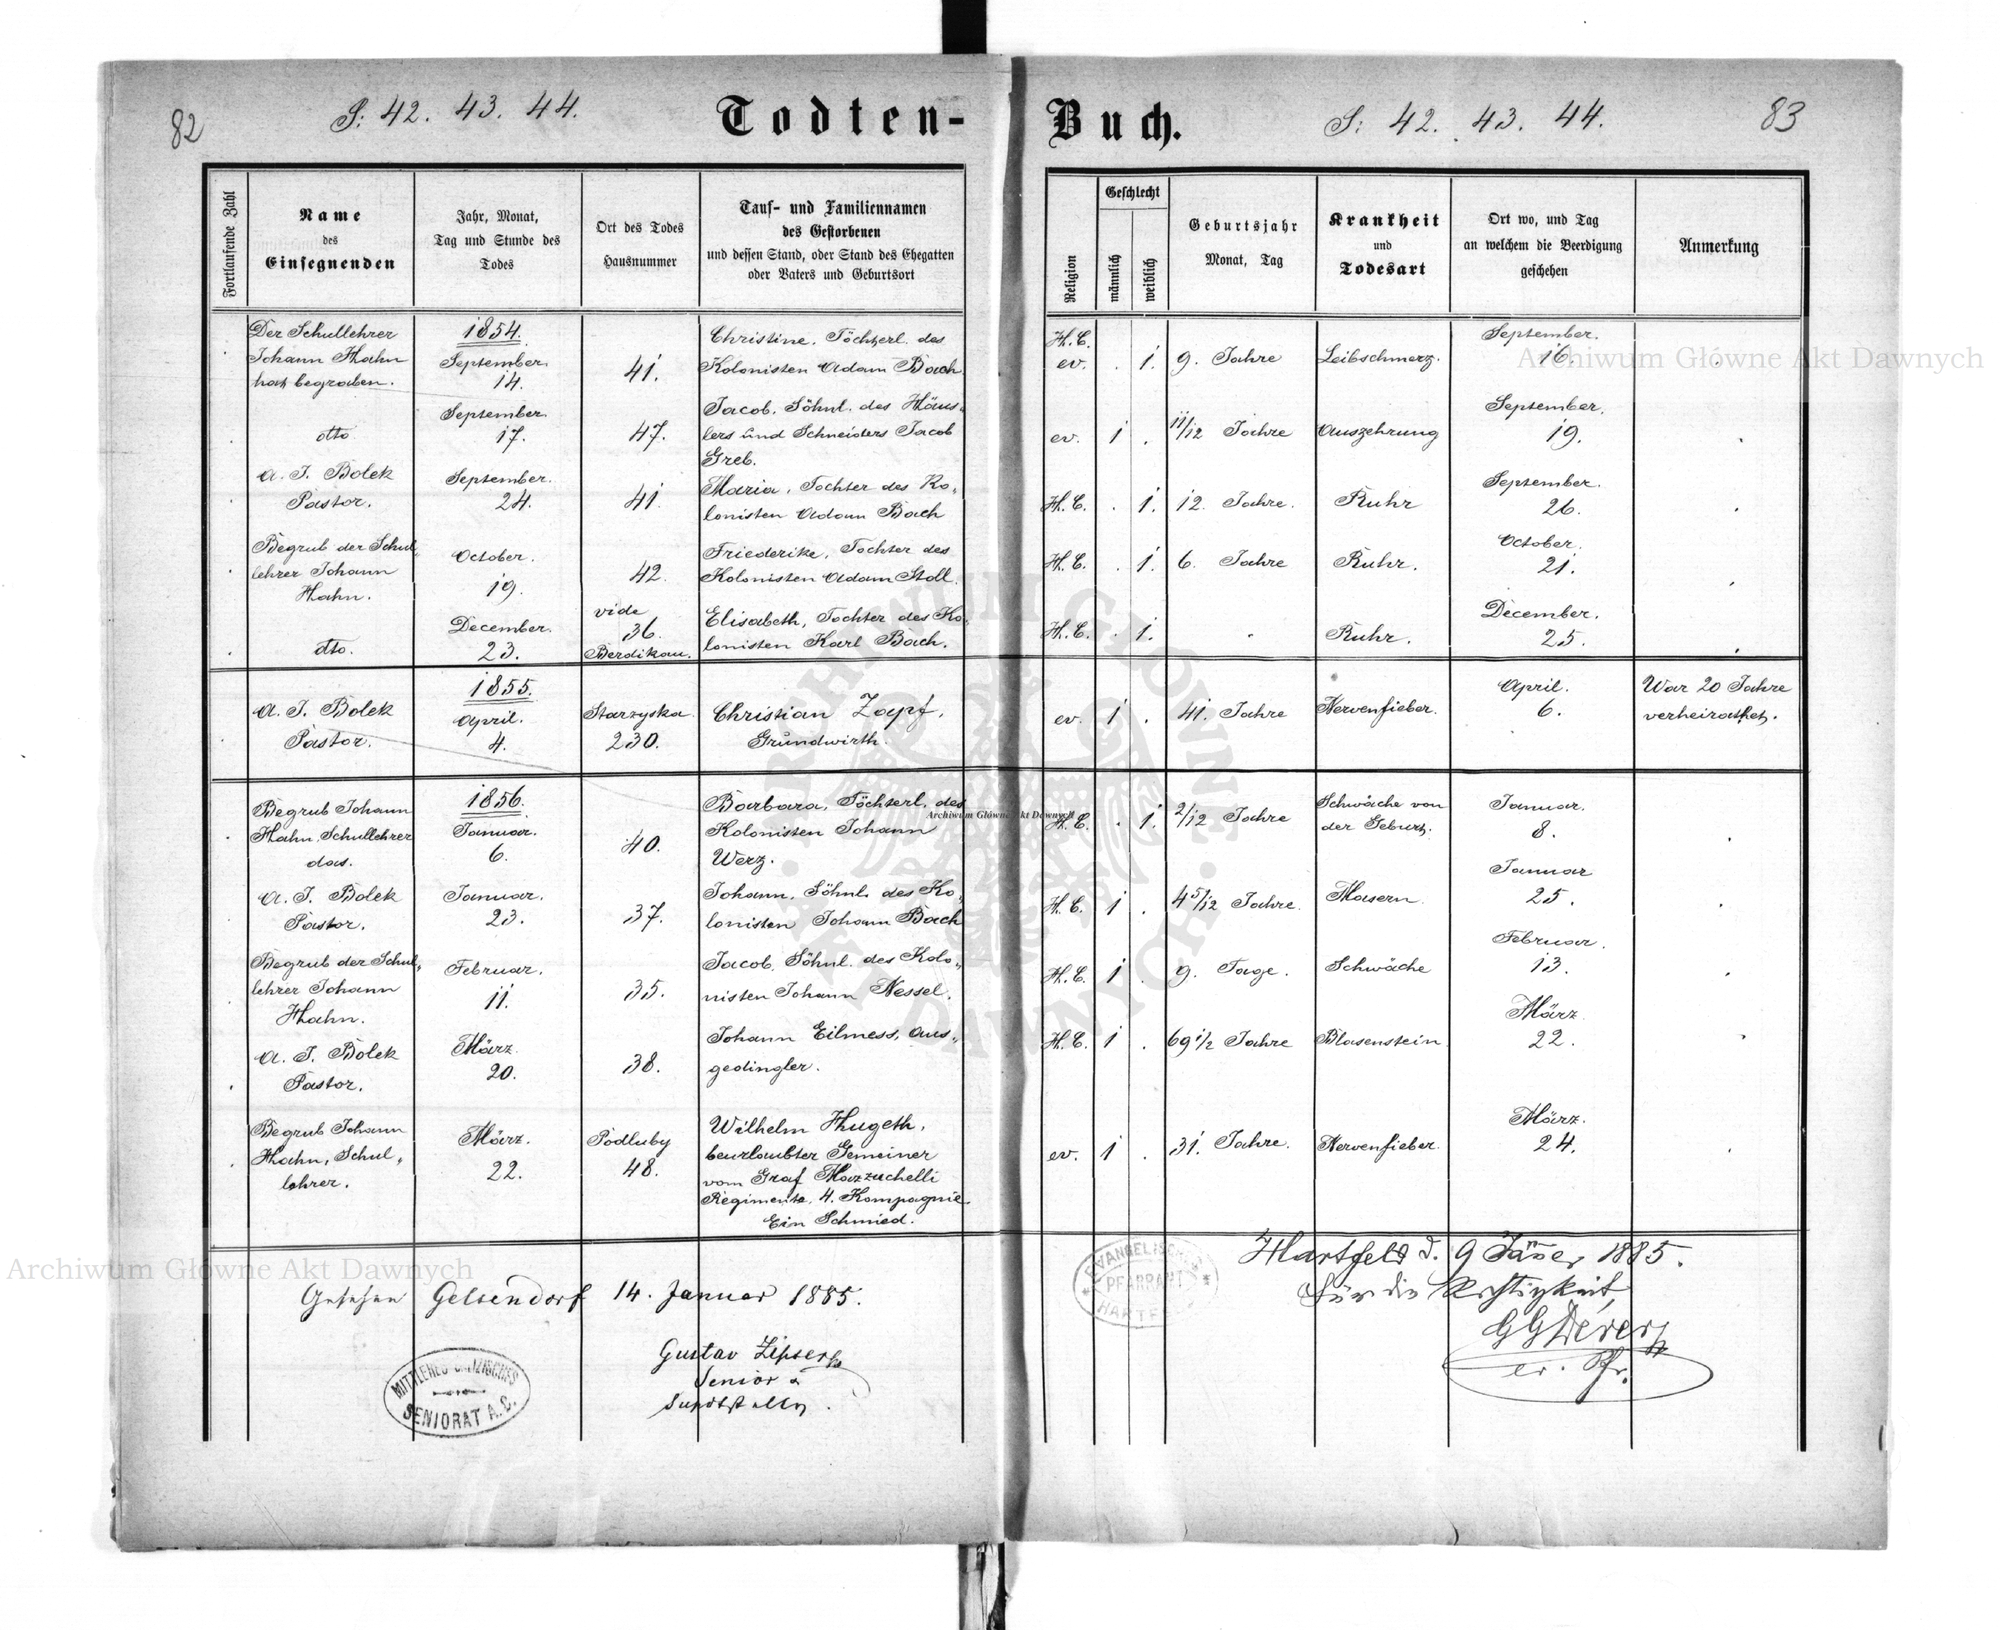 82
S: 42. 43. 44.
Todten-
Buch.
S: 42. 43. 44.
83
Fortlaufende Zahl
Name
des
Einsegnenden
Jahr, Monat,
Tag und Stunde des
Todes
Ort des Todes
Hausnummer
Tauf- und Familiennamen
des Gestorbenen
und dessen Stand, oder Stand des Ehegatten
oder Vaters und Geburtsort
Religion
Geschlecht
männlich
weiblich
Geburtsjahr
Monat, Tag
Krankheit
und
Todesart
Ort wo, und Tag
an welchem die Beerdigung
geschehen
Anmerkung
Der Schullehrer
Johann Hahn
hat begraben.
1854.
September.
14.
41.
Christine, Töchterl. des
Kolonisten Adam Bach.
H. C.
ev. . 1.
9. Jahre
Leibschmerz.
September.
16.
dtto
September.
17.
47.
Jacob, Söhnl. des Häus„
lers und Schneiders Jacob
Greb.
ev. 1 .
11/12 Jahre
Auszehrung
September.
19.
A. J. Bolek
Pastor.
September.
24.
41.
Maria, Tochter des Ko„
lonisten Adam Bach
H. C. . 1.
12. Jahre.
Ruhr
September.
26.
Begrub der Schul„
lehrer Johann
Hahn.
October.
19.
42.
Friederike, Tochter des
Kolonisten Adam Stoll.
H. C. . 1.
6. Jahre
Ruhr.
October.
21.
dto.
December.
23.
vide
36.
Berdikau.
Elisabeth, Tochter des Ko„
lonisten Karl Bach.
H. C. . 1.
Ruhr.
December.
25.
A. J. Bolek
Pastor.
1855.
April.
4.
Starzyska
230.
Christian Zapf,
Grundwirth.
ev. 1 .
41. Jahre
Nervenfieber.
April.
6.
War 20 Jahre
verheirathet.
Begrub Johann
Hahn, Schullehrer
das.
1856.
Januar.
6.
40.
Barbara, Töchterl. des
Kolonisten Johann
Werz.
H. C. . 1.
2/12 Jahre
Schwäche von
der Geburt.
Januar.
8.
A. J. Bolek
Pastor.
Januar.
23.
37.
Johann, Söhnl. des Ko„
lonisten Johann Bach
H. C. 1 .
4 5/12 Jahre.
Masern.
Januar
25.
Begrub der Schul„
lehrer Johann
Hahn.
Februar.
11.
35.
Jacob, Söhnl. des Kolo„
nisten Johann Nessel.
H. C. 1 .
9. Tage.
Schwäche
Februar.
13.
A. J. Bolek
Pastor.
März
20.
38.
Johann Eilmess, Aus„
gedingler.
H. C. 1 .
69 1/2 Jahre
Blasenstein.
März
22.
Begrub Johann
Hahn, Schul„
lehrer.
März.
22.
Podluby
48.
Wilhelm Hugeth,
beurlaubter Gemeiner
vom Graf Mazzuchelli
Regimente, 4. Kompagnie
Ein Schmied.
ev. 1 .
31. Jahre.
Nervenfieber.
März.
24.
Gesehen Gelsendorf 14. Januar 1885.
Gustav Zipser
Senior
MITTLERES GALIZISCHES
SENIORAT A. C.
EVANGELISCHES
PFARRAMT
HARTFELD
Hartfeld d. 9 Jänner 1885.
Für die Richtigkeit
ev. Pfr.
Archiwum Główne Akt Dawnych
Archiwum Główne Akt Dawnych
Archiwum Główne Akt Dawnych
ARCHIWUM GŁÓWNE AKT DAWNYCH